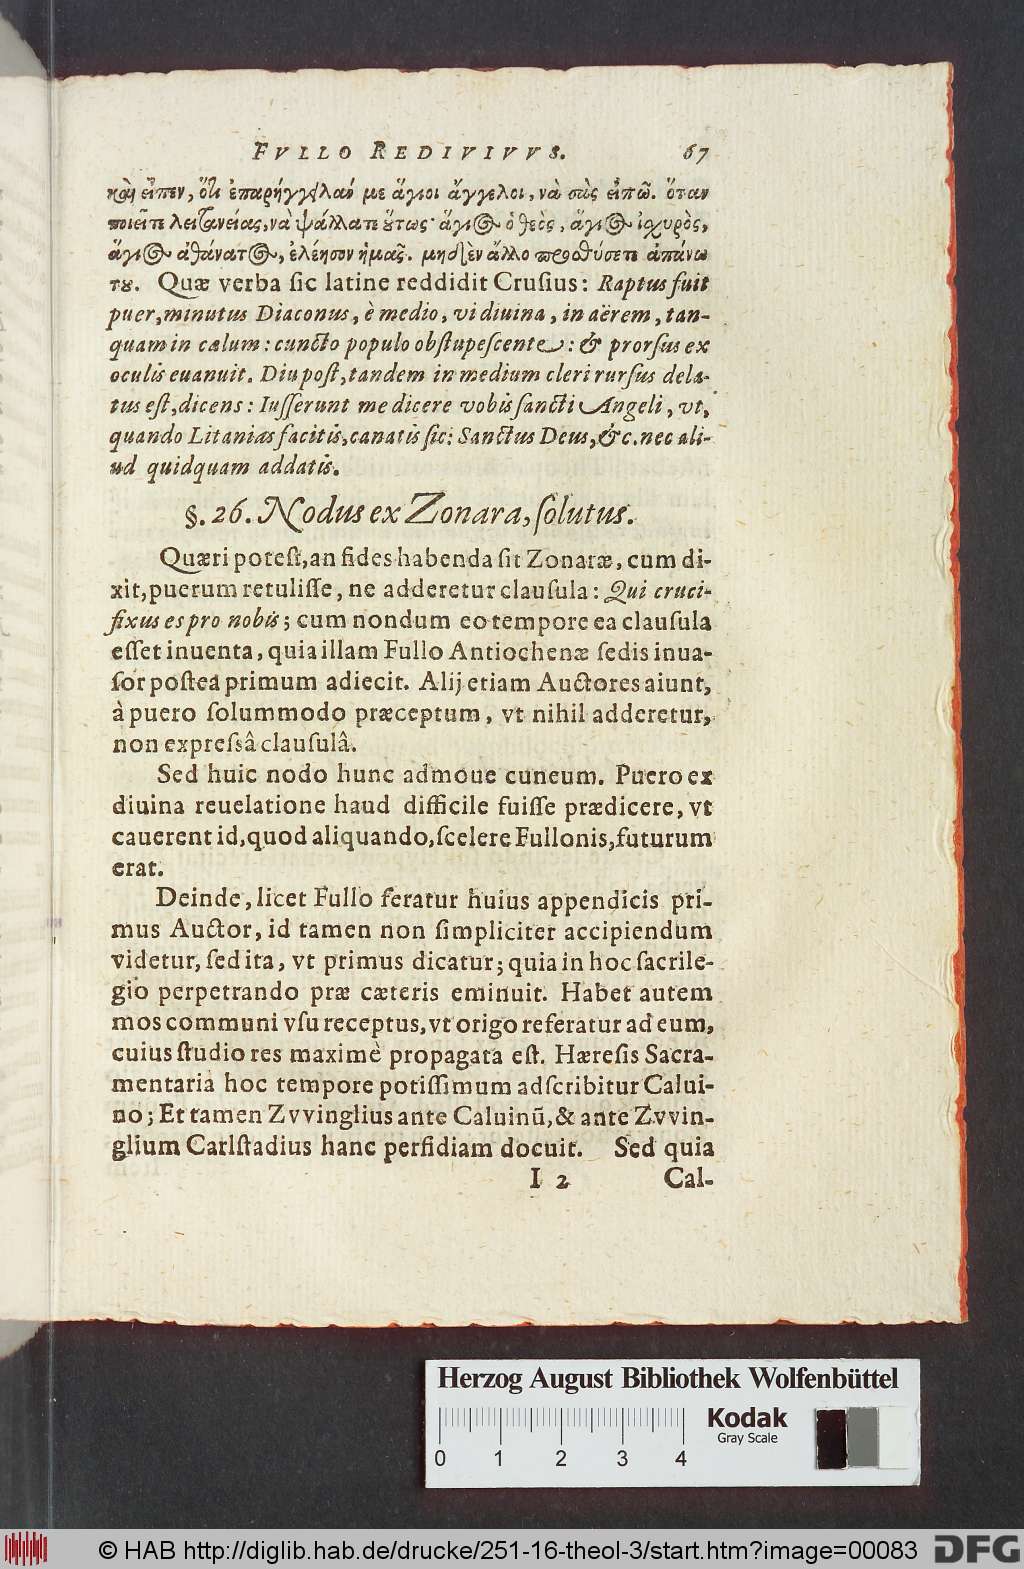 FVLLO REDIVIVVS. 67
καὶ εἶπεν, ὅτι ἐπαρήγγειλάν με ἅγιοι ἄγγελοι, νὰ σᾶς εἰπῶ. ὅταν
ποιεῖτε λειτανείας, νὰ ψάλλατε οὕτως· ἅγιος ὁ θεὸς, ἅγιος ἰσχυρὸς,
ἅγιος ἀθάνατος, ἐλέησον ἡμᾶς. μηδὲν ἄλλο προθύσετε ἀπάνω
του. Quæ verba ſic latine reddidit Cruſius: Raptus fuit
puer, minutus Diaconus, è medio, vi diuina, in aërem, tan-
quam in cælum: cuncto populo obſtupeſcente: & prorſus ex
oculis euanuit. Diu poſt, tandem in medium cleri rurſus dela-
tus eſt, dicens: Iuſſerunt me dicere vobis ſancti Angeli, vt,
quando Litanias facitis, canatis ſic: Sanctus Deus, &c. nec ali-
ud quidquam addatis.
§. 26. Nodus ex Zonara, ſolutus.
Quæri poteſt, an fides habenda ſit Zonaræ, cum di-
xit, puerum retuliſſe, ne adderetur clauſula: Qui cruci-
fixus es pro nobis; cum nondum eo tempore ea clauſula
eſſet inuenta, quia illam Fullo Antiochenæ ſedis inua-
ſor poſtea primum adiecit. Alij etiam Auctores aiunt,
à puero ſolummodo præceptum, vt nihil adderetur,
non expreſsâ clauſulâ.
Sed huic nodo hunc admoue cuneum. Puero ex
diuina reuelatione haud difficile fuiſſe prædicere, vt
cauerent id, quod aliquando, ſcelere Fullonis, futurum
erat.
Deinde, licet Fullo feratur huius appendicis pri-
mus Auctor, id tamen non ſimpliciter accipiendum
videtur, ſed ita, vt primus dicatur; quia in hoc ſacrile-
gio perpetrando præ cæteris eminuit. Habet autem
mos communi vſu receptus, vt origo referatur ad eum,
cuius ſtudio res maximè propagata eſt. Hæreſis Sacra-
mentaria hoc tempore potiſſimum adſcribitur Calui-
no; Et tamen Zvvinglius ante Caluinũ, & ante Zvvin-
glium Carlſtadius hanc perfidiam docuit. Sed quia
I 2 Cal-
Herzog August Bibliothek Wolfenbüttel
Kodak
Gray Scale
0 1 2 3 4
© HAB http://diglib.hab.de/drucke/251-16-theol-3/start.htm?image=00083 DFG